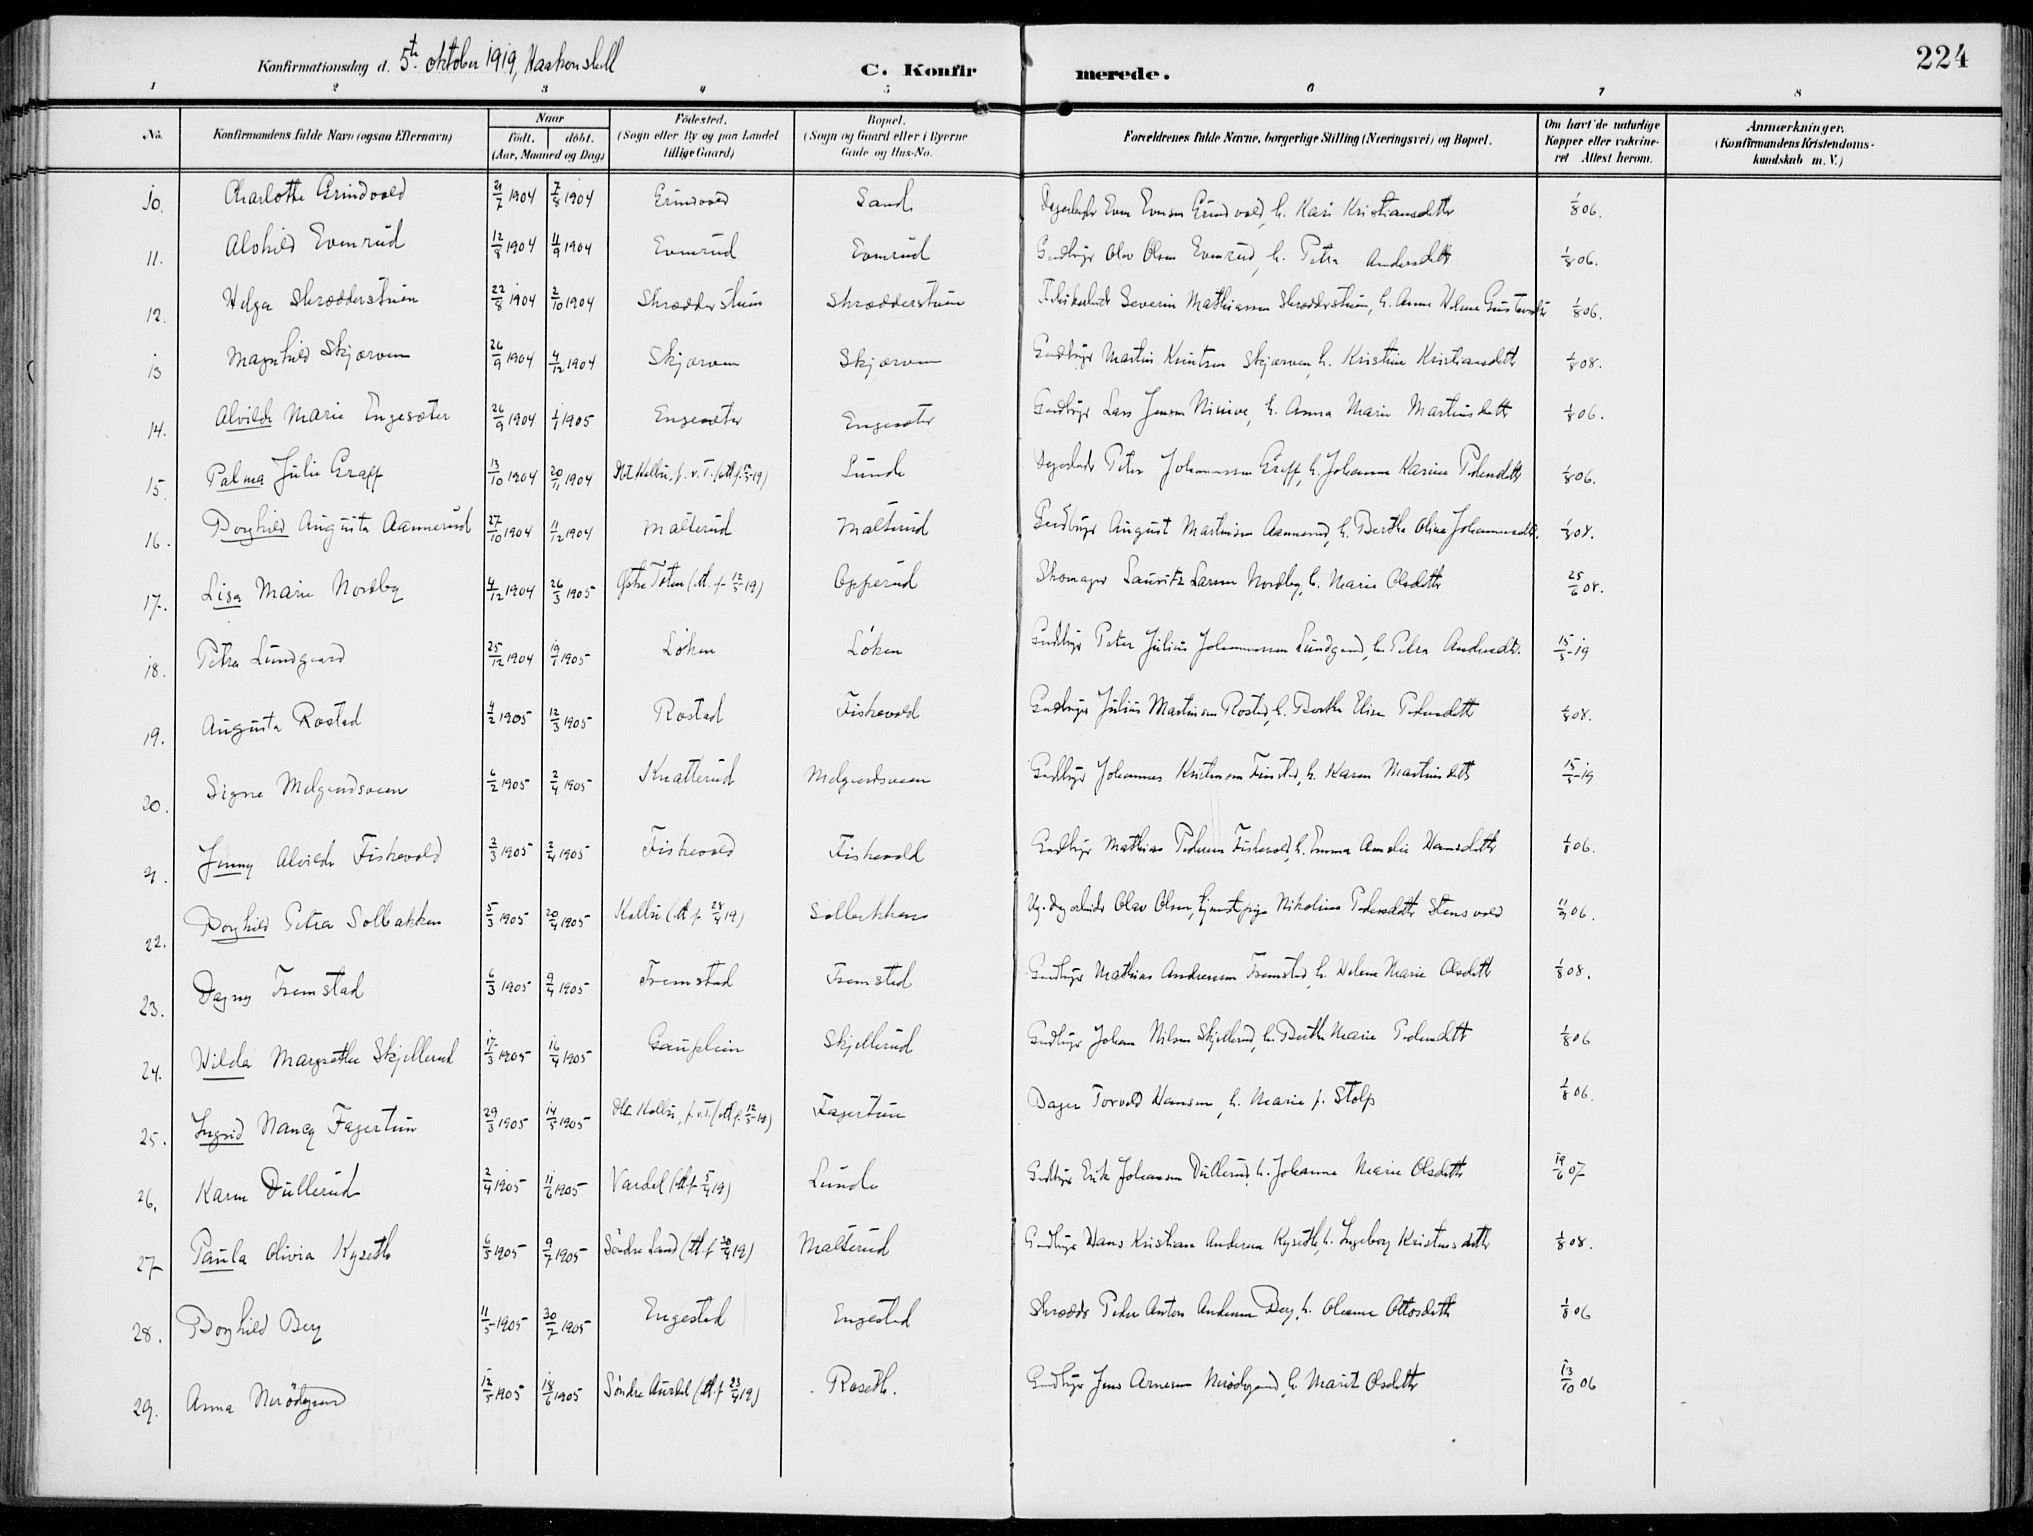 Konfirmationsdag d. 5te oktober 1919, Haakonshall
C. Konfirmerede.
224
1 2 3 4 5 6 7 8
No. | Konfirmandens fulde Navn (ogsaa Efternavn) | Naar født. døbt. (Aar, Maaned og Dag) | Fødested. (Sogn eller By og paa Landet tillige Gaard) | Bopæl. (Sogn og Gaard eller i Byerne Gade og Hus-No. | Forældrenes fulde Navne, borgerlige Stilling (Næringsvei) og Bopæl. | Om havt de naturlige Kopper eller vakcineret Attest herom. | Anmærkninger. (Konfirmandens Kristendomskundskab m. V.)
10. Charlotte Grindvold 29/7 1904 7/8 1904 Grindvold Sand Even Evensen Grindvold, h. Kari Kristiansdatter 1/8 06.
11. Alvhild Evenrud 12/8 1904 11/9 1904 Evenrud Evenrud Gaardbruger Olav Olsen Evenrud, h. Petra Andersdatter 1/8 06.
12. Helga Skrædderstuen 22/8 1904 2/10 1904 Skrædderstuen Skrædderstuen Severin Mathiassen Skrædderstuen, h. Anne Helene 1/8 06.
13 Magnhild Skjærven 26/9 1904 4/12 1904 Skjærven Skjærven Gaardbruger Martin Knutsen Skjærven, h. Kristine Kristiansdatter 1/8 08.
14. Alvilde Marie Engesæter 26/9 1904 1/1 1905 Engesæter Engesæter Gaardbruger Lars Jensen h. Anna Marie Martinsdatter 1/8 06.
15. Palma Julie Graff 13/10 1904 20/11 1904 Kolbu, p. v. T. Lunde Peter Johannessen Graff, h. Johanne Karine Pedersdatter 1/8 06.
16. Borghild Augusta Aannerud 27/10 1904 11/12 1904 Malterud Malterud Gaardbruger August Martinsen Aannerud, h. Berthe Oline Johannesdtr. 1/8 08.
17. Lisa Marie Nordby 4/12 1904 26/3 1905 Østre Toten (att. fr. 12/5 19) Opperud Skomager Lauritz Larsen Nordby, h. Marie Olsdatter 25/6 08.
18. Petra Lundgaard 25/12 1904 19/1 1905 Løken Løken Gaardbruger Peter Julius Johannessen Lundgaard, h. Petra Andersdtr. 15/5-19
19. Augusta Rostad 4/2 1905 12/3 1905 Rostad Fiskevold Gaardbruger Julius Martinsen Rostad, h. Berthe Elise Pedersdatter 1/8 08.
20. Signe Melgaardsveen 6/2 1905 2/4 1905 Knatterud Melgaardsveen Gaardbruger Johannes h. Karen Martinsdatter 15/5-19
21. Jenny Alvilde Fiskevold 2/3 1905 2/4 1905 Fiskevold Fiskevold Gaardbruger Mathias Pedersen Fiskevold, h. Emma Amalie Hansdatter 1/8 06.
22. Borghild Petra Solbakken 5/3 1905 20/4 1905 Kolbu (att. fr. 28/4 19) Solbakken Olav Olsen, Nikoline Pedersdatter Stensvold 11/9 06.
23. Dagny Fremstad 6/3 1905 9/4 1905 Fremstad Fremstad Gaardbruger Mathias Andersen Fremstad, h. Helene Marie Olsdatter 1/8 08.
24. Hilda Margrethe Skjellerud 17/3 1905 16/4 1905 Skjellerud Gaardbruger Johan Nilsen Skjellerud, h. Berthe Marie Pedersdatter 1/8 06
25. Ingrid Nancy Fagertun 29/3 1905 14/5 1905 Kolbu, p. v. T. (att. fr. 12/5-19) Fagertun Bager Torvald Hansen, h. Marie f. Stolp 1/8 06.
26. Karen Dullerud 2/4 1905 11/6 1905 Vardal (att. fr. 5/4 19) Lunde Gaardbruger Erik Johansen Dullerud, h. Johanne Marie Olsdatter 19/6 07
27 Paula Olivia Kyseth 6/5 1905 9/7 1905 Søndre Land (att. fr. 30/4 19) Malterud Gaardbruger Hans Kristian Andersen Kyseth, h. Ingeborg Kristensdatter 1/8 08.
28. Borghild Berg 11/5 1905 30/7 1905 Engestad Engestad Skrædder Peder Anton Andersen Berg, h. Oleanne Ottosdatter 1/8 06
29. Anna 12/5 1905 18/6 1905 Søndre Aurdal (att. fr. 23/4 19) Roseth. Gaardbruger Jens Arnesen h. Marit Olsdatter 13/10 06